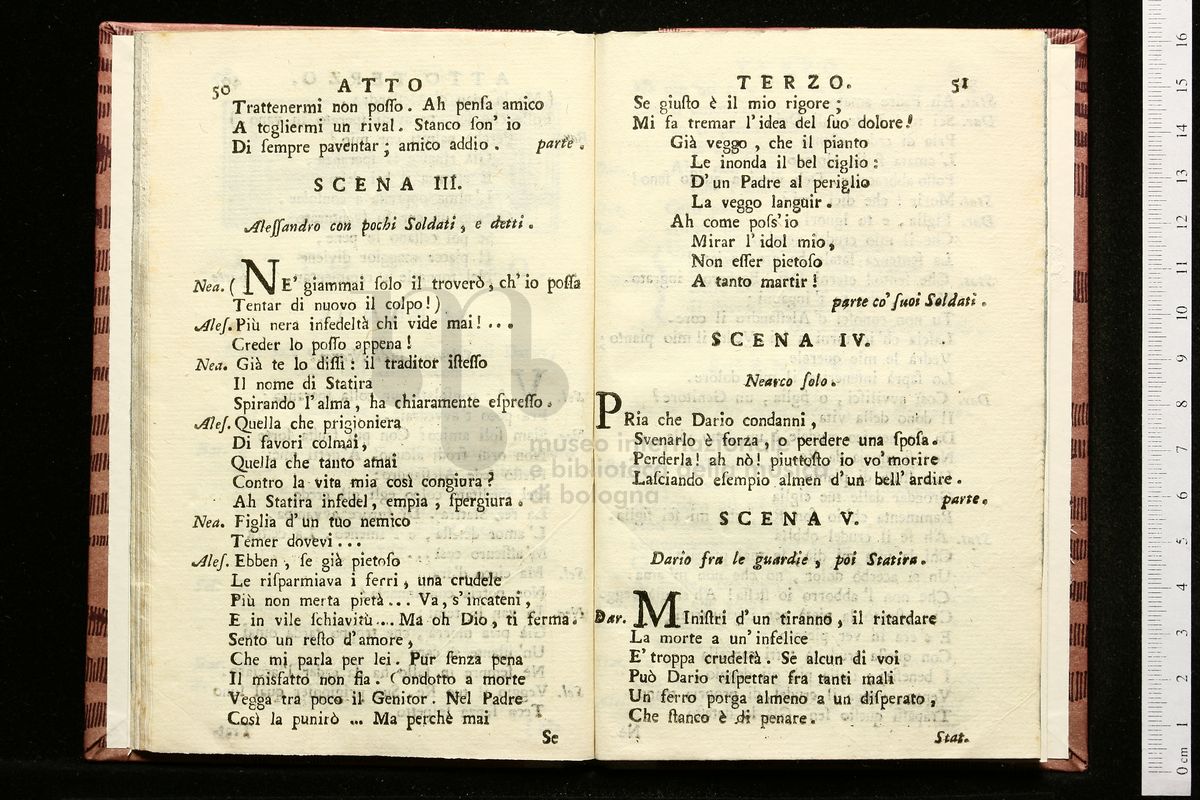 50 ATTO
Trattenermi non poſſo. Ah penſa amico
A togliermi un rival. Stanco ſon' io
Di ſempre paventar; amico addio. parte.
SCENA III.
Aleſſandro con pochi Soldati, e detti.
Nea. (NE' giammai ſolo il troverò, ch' io poſſa
Tentar di nuovo il colpo!)
Aleſ. Più nera infedeltà chi vide mai! ...
Creder lo poſſo appena!
Nea. Già te lo diſſi: il traditor iſteſſo
Il nome di Statira
Spirando l'alma, ha chiaramente eſpreſſo.
Aleſ. Quella che prigioniera
Di favori colmai,
Quella che tanto amai
Contro la vita mia così congiura?
Ah Statira infedel, empia, ſpergiura.
Nea. Figlia d'un tuo nemico
Temer dovevi...
Aleſ. Ebben, ſe già pietoſo
Le riſparmiava i ferri, una crudele
Più non merta pietà... Va, s'incateni,
E in vile ſchiavitù... Ma oh Dio, ti ferma.
Sento un reſto d'amore,
Che mi parla per lei. Pur ſenza pena
Il misfatto non fia. Condotto a morte
Vegga tra poco il Genitor. Nel Padre
Così la punirò ... Ma perchè mai
Se
TERZO. 51
Se giuſto è il mio rigore;
Mi fa tremar l'idea del ſuo dolore!
Già veggo, che il pianto
Le inonda il bel ciglio:
D'un Padre al periglio
La veggo languir.
Ah come poſs'io
Mirar l'idol mio,
Non eſſer pietoſo
A tanto martir!
parte co' ſuoi Soldati.
SCENA IV.
Nearco ſolo.
PRia che Dario condanni,
Svenarlo è forza, o perdere una ſpoſa.
Perderla! ah nò! piuttoſto io vo' morire
Laſciando eſempio almen d'un bell' ardire.
parte.
SCENA V.
Dario fra le guardie, poi Statira.
Dar. MIniſtri d'un tiranno, il ritardare
La morte a un' infelice
E' troppa crudeltà. Se alcun di voi
Può Dario riſpettar fra tanti mali
Un ferro porga almeno a un diſperato,
Che ſtanco è di penare.
Stat.
museo internazionale
e biblioteca della musica
di bologna
0 cm 1 2 3 4 5 6 7 8 9 10 11 12 13 14 15 16